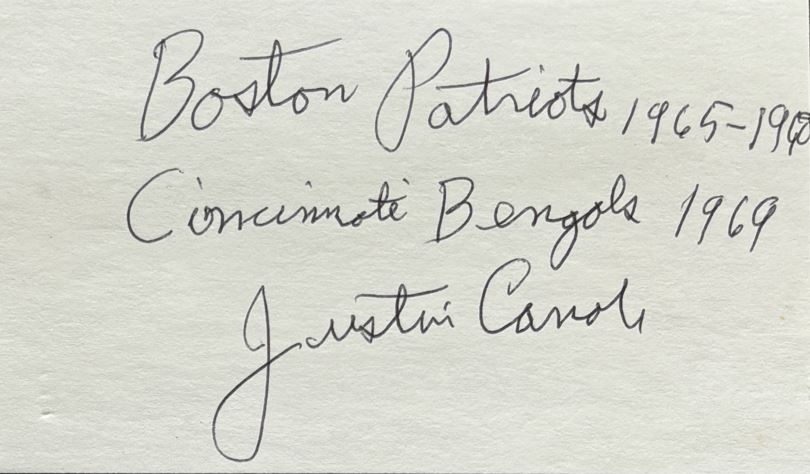 Boston Patriots 1965-1968
Cincinnati Bengals 1969
Justin Canale